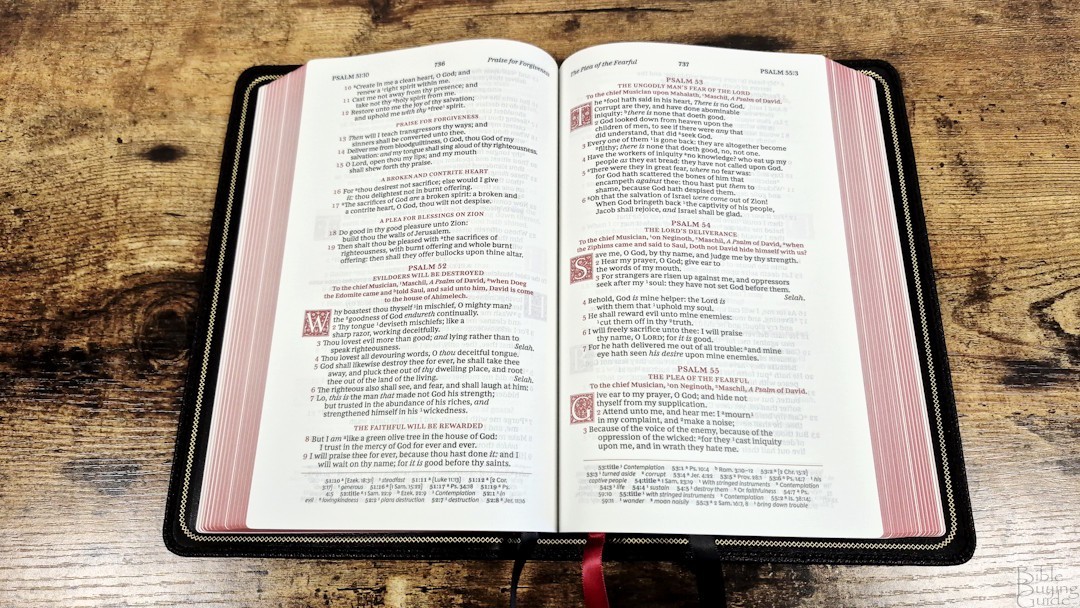 PSALM 51:10
736
Praise for Forgiveness
10 Create in me a clean heart, O God; and
renew a right spirit within me.
11 Cast me not away from thy presence; and
take not thy holy spirit from me.
12 Restore unto me the joy of thy salvation;
and uphold me with thy free spirit.
PRAISE FOR FORGIVENESS
13 Then will I teach transgressors thy ways; and
sinners shall be converted unto thee.
14 Deliver me from bloodguiltiness, O God, thou God of my
salvation: and my tongue shall sing aloud of thy righteousness.
15 O Lord, open thou my lips; and my mouth
shall shew forth thy praise.
A BROKEN AND CONTRITE HEART
16 For thou desirest not sacrifice; else would I give
it: thou delightest not in burnt offering.
17 The sacrifices of God are a broken spirit: a broken and
a contrite heart, O God, thou wilt not despise.
A PLEA FOR BLESSINGS ON ZION
18 Do good in thy good pleasure unto Zion:
build thou the walls of Jerusalem.
19 Then shalt thou be pleased with the sacrifices of
righteousness, with burnt offering and whole burnt
offering: then shall they offer bullocks upon thine altar.
PSALM 52
EVILDOERS WILL BE DESTROYED
To the chief Musician, Maschil, A Psalm of David, when Doeg
the Edomite came and told Saul, and said unto him, David is come
to the house of Ahimelech.
Why boastest thou thyself in mischief, O mighty man?
the goodness of God endureth continually.
2 Thy tongue deviseth mischiefs; like a
sharp razor, working deceitfully.
3 Thou lovest evil more than good; and lying rather than to
speak righteousness. Selah.
4 Thou lovest all devouring words, O thou deceitful tongue.
5 God shall likewise destroy thee for ever, he shall take thee
away, and pluck thee out of thy dwelling place, and root
thee out of the land of the living. Selah.
6 The righteous also shall see, and fear, and shall laugh at him:
7 Lo, this is the man that made not God his strength;
but trusted in the abundance of his riches, and
strengthened himself in his wickedness.
THE FAITHFUL WILL BE REWARDED
8 But I am like a green olive tree in the house of God:
I trust in the mercy of God for ever and ever.
9 I will praise thee for ever, because thou hast done it: and I
will wait on thy name; for it is good before thy saints.
The Plea of the Fearful
737
PSALM 55:3
PSALM 53
THE UNGODLY MAN'S FEAR OF THE LORD
To the chief Musician upon Mahalath, Maschil, A Psalm of David.
The fool hath said in his heart, There is no God.
Corrupt are they, and have done abominable
iniquity: there is none that doeth good.
2 God looked down from heaven upon the
children of men, to see if there were any that
did understand, that did seek God.
3 Every one of them is gone back: they are altogether become
filthy; there is none that doeth good, no, not one.
4 Have the workers of iniquity no knowledge? who eat up my
people as they eat bread: they have not called upon God.
5 There were they in great fear, where no fear was:
for God hath scattered the bones of him that
encampeth against thee: thou hast put them to
shame, because God hath despised them.
6 Oh that the salvation of Israel were come out of Zion!
When God bringeth back the captivity of his people,
Jacob shall rejoice, and Israel shall be glad.
PSALM 54
THE LORD'S DELIVERANCE
To the chief Musician, on Neginoth, Maschil, A Psalm of David, when
the Ziphims came and said to Saul, Doth not David hide himself with us?
Save me, O God, by thy name, and judge me by thy strength.
2 Hear my prayer, O God; give ear to
the words of my mouth.
3 For strangers are risen up against me, and oppressors
seek after my soul: they have not set God before them.
Selah.
4 Behold, God is mine helper: the Lord is
with them that uphold my soul.
5 He shall reward evil unto mine enemies:
cut them off in thy truth.
6 I will freely sacrifice unto thee: I will praise
thy name, O LORD; for it is good.
7 For he hath delivered me out of all trouble: and mine
eye hath seen his desire upon mine enemies.
PSALM 55
THE PLEA OF THE FEARFUL
To the chief Musician, on Neginoth, Maschil, A Psalm of David.
Give ear to my prayer, O God; and hide not
thyself from my supplication.
2 Attend unto me, and hear me: I mourn
in my complaint, and make a noise;
3 Because of the voice of the enemy, because of the
oppression of the wicked: for they cast iniquity
upon me, and in wrath they hate me.
Bible
Buying
Guide